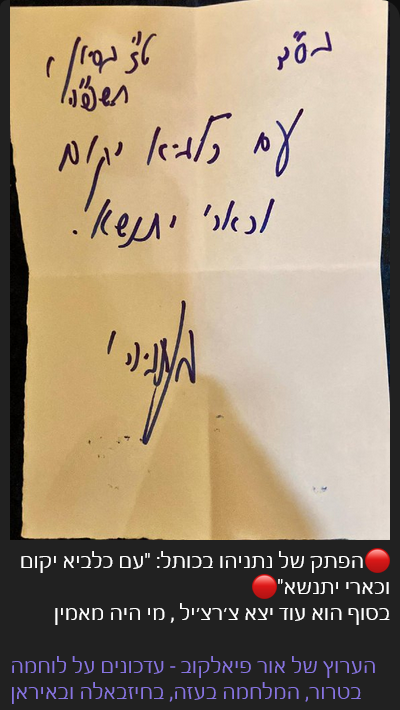 בס"ד
ט"ז בסיון
תשפ"ה
עם כלביא יקום
וכארי יתנשא.
🔴הפתק של נתניהו בכותל: "עם כלביא יקום
וכארי יתנשא"🔴
בסוף הוא עוד יצא צ׳רצ׳יל , מי היה מאמין
הערוץ של אור פיאלקוב - עדכונים על לוחמה
בטרור, המלחמה בעזה, בחיזבאלה ובאיראן